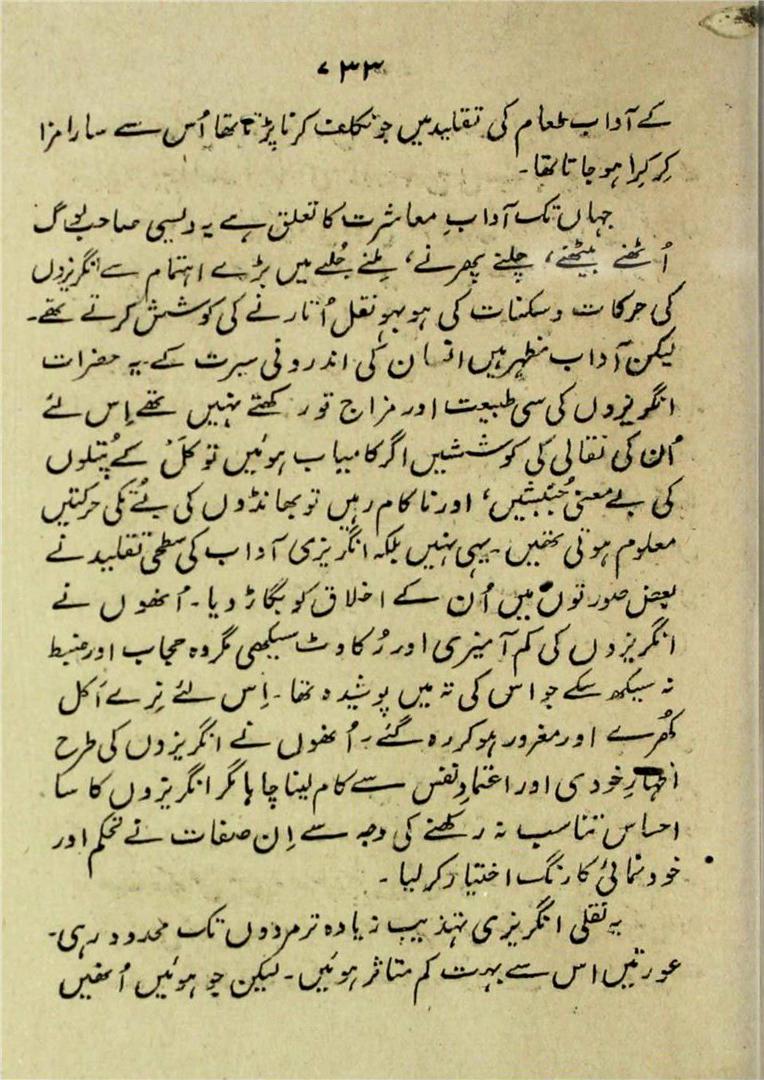 ۷۳۳
کے آداب طعام کی تقلید میں جو تکلف کرنا پڑتا تھا اُس سے سارا مزا
کِرکِرا ہو جاتا تھا۔
جہاں تک آدابِ معاشرت کا تعلق ہے یہ دیسی صاحب لوگ
اُٹھنے بیٹھنے، چلنے پھرنے، مِلنے جُلنے میں بڑے اہتمام سے انگریزوں
کی حرکات و سکنات کی ہوبہو نقل اُتارنے کی کوشش کرتے تھے۔
لیکن آداب مظہر ہیں انسان کی اندرونی سیرت کے۔ یہ حضرات
انگریزوں کی سی طبیعت اور مزاج تو رکھتے نہیں تھے اِس لئے
اُن کی نقالی کی کوششیں اگر کامیاب ہوئیں تو کَل کے پُتلوں
کی بے معنی جُنبشیں، اور ناکام رہیں تو بھانڈوں کی بے تُکی حرکتیں
معلوم ہوتی تھیں۔ یہی نہیں بلکہ انگریزی آداب کی سطحی تقلید نے
بعض صورتوں میں اُن کے اخلاق کو بگاڑ دیا۔ اُنھوں نے
انگریزوں کی کم آمیزی اور رُکاوٹ سیکھی مگر وہ حجاب اور ضبط
نہ سیکھ سکے جو اس کی تہ میں پوشیدہ تھا۔ اِس لئے نِرے اَکل
کھُرے اور مغرور ہو کر رہ گئے۔ اُنھوں نے انگریزوں کی طرح
اظہارِ خودی اور اعتمادِ نفس سے کام لینا چاہا مگر انگریزوں کا سا
احساس تناسب نہ رکھنے کی وجہ سے اِن صفات نے تحکم اور
خود نمائی کا رنگ اختیار کر لیا۔
یہ نقلی انگریزی تہذیب زیادہ تر مردوں تک محدود رہی۔
عورتیں اس سے بہت کم متاثر ہوئیں۔ لیکن جو ہوئیں اُنھیں